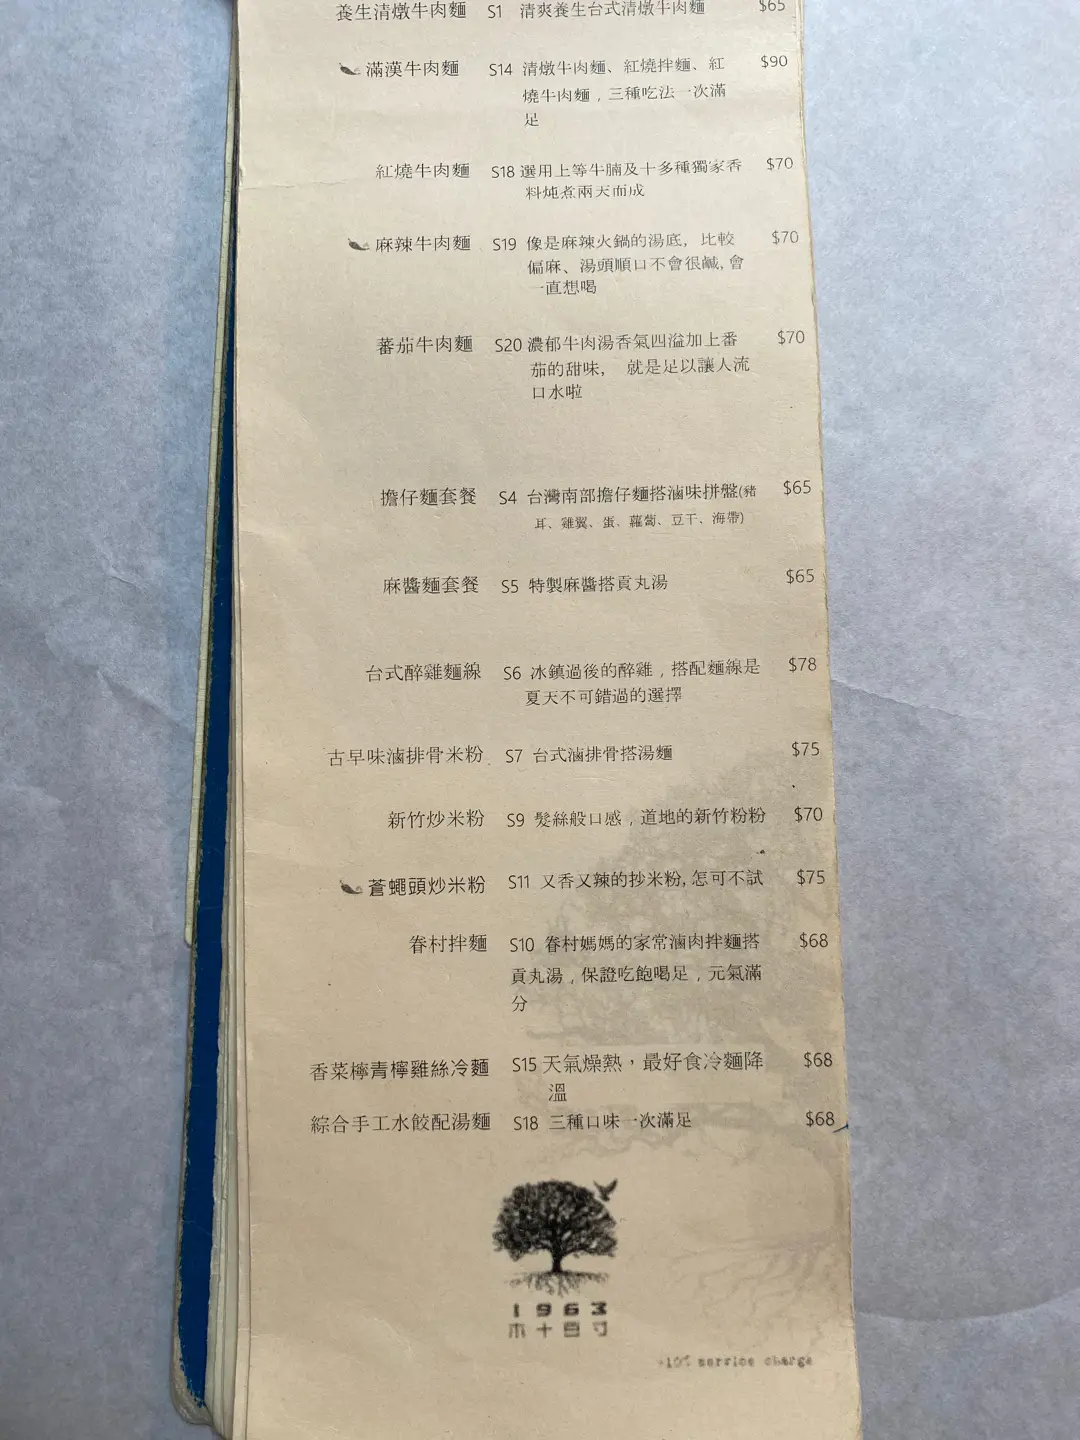 養生清燉牛肉麵 S1 清爽養生台式清燉牛肉麵 $65
滿漢牛肉麵 S14 清燉牛肉麵、紅燒拌麵、紅 $90
燒牛肉麵，三種吃法一次滿
足
紅燒牛肉麵 S18 選用上等牛腩及十多種獨家香 $70
料炖煮兩天而成
麻辣牛肉麵 S19 像是麻辣火鍋的湯底， 比較 $70
偏麻、湯頭順口不會很鹹,會
一直想喝
蕃茄牛肉麵 S20 濃郁牛肉湯香氣四溢加上番 $70
茄的甜味， 就是足以讓人流
口水啦
擔仔麵套餐 S4 台灣南部擔仔麵搭滷味拼盤(豬 $65
耳、雞翼、蛋、蘿蔔、豆干、海帶)
麻醬麵套餐 S5 特製麻醬搭貢丸湯 $65
台式醉雞麵線 S6 冰鎮過後的醉雞，搭配麵線是 $78
夏天不可錯過的選擇
古早味滷排骨米粉 S7 台式滷排骨搭湯麵 $75
新竹炒米粉 S9 髮絲般口感，道地的新竹粉粉 $70
蒼蠅頭炒米粉 S11 又香又辣的抄米粉,怎可不試 $75
眷村拌麵 S10 眷村媽媽的家常滷肉拌麵搭 $68
貢丸湯，保證吃飽喝足，元氣滿
分
香菜檸青檸雞絲冷麵 S15 天氣燥熱，最好食冷麵降 $68
溫
綜合手工水餃配湯麵 S18 三種口味一次滿足 $68
1963
+10% service charge